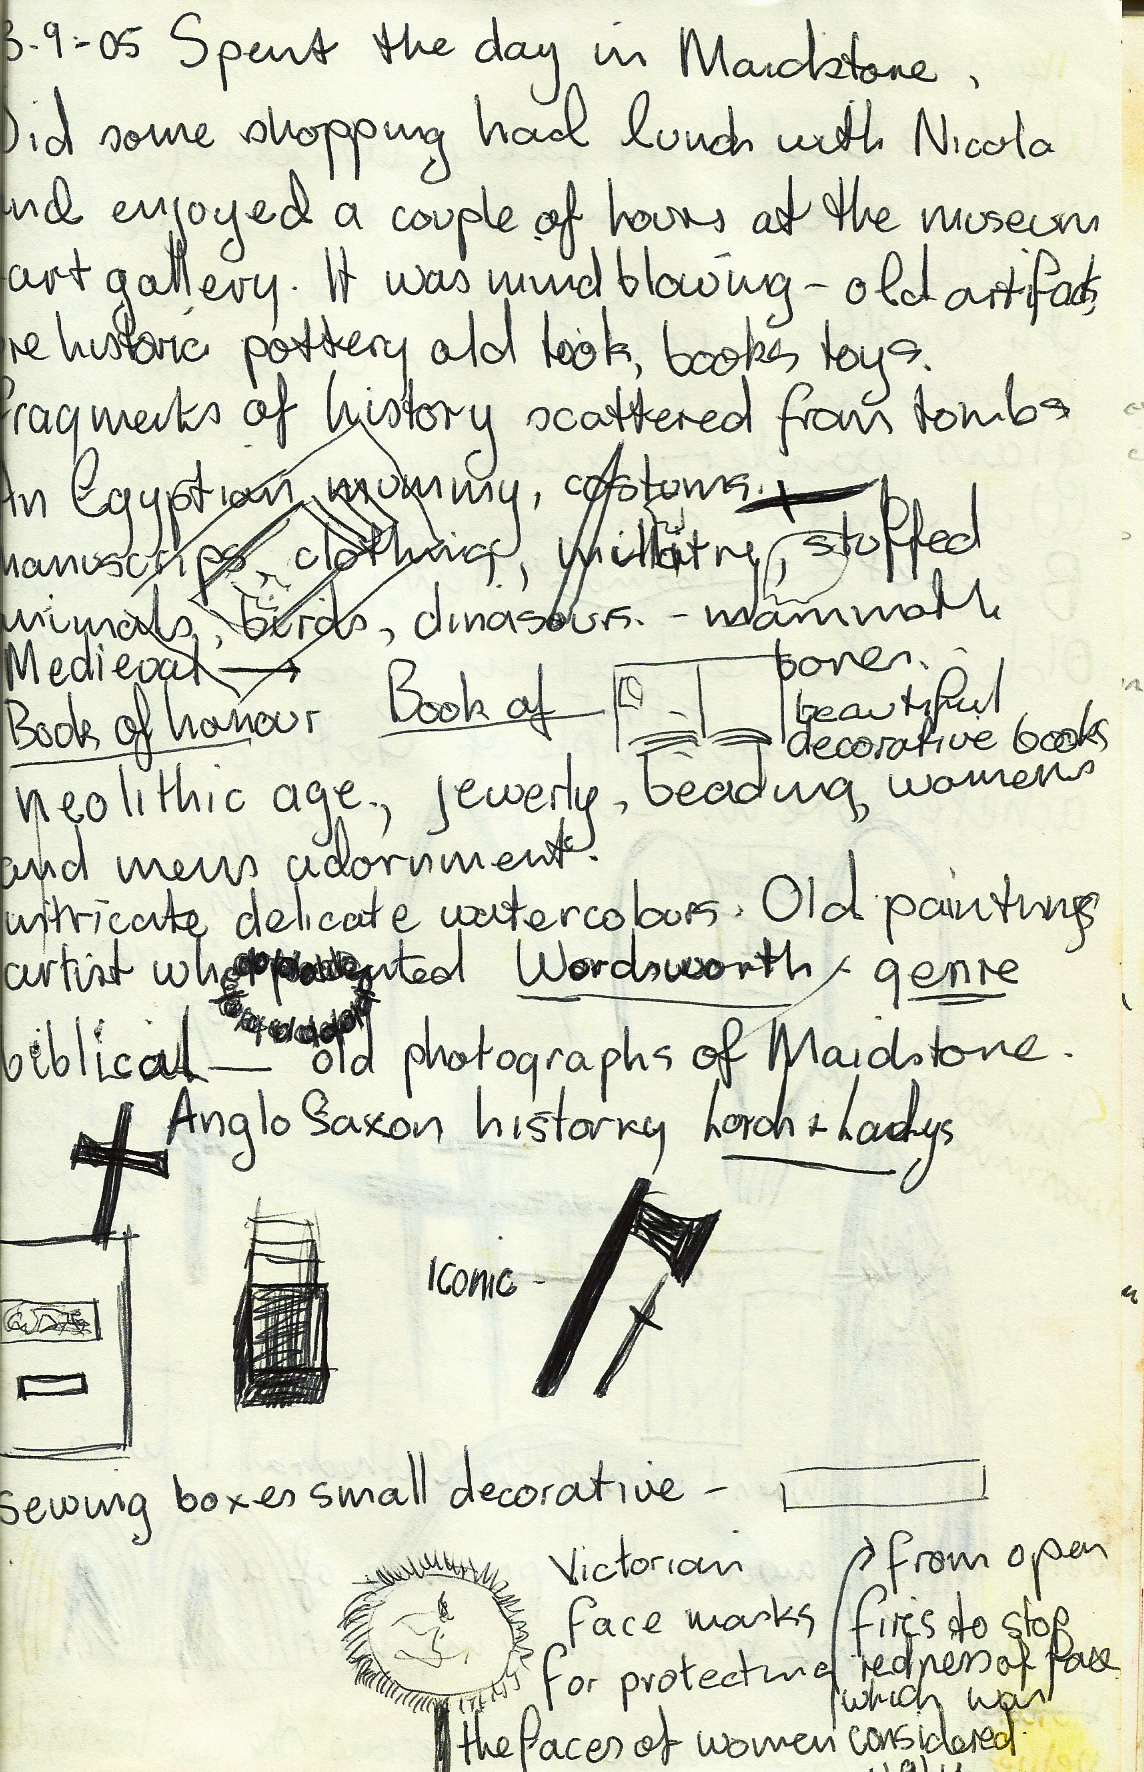 3-9-05 Spent the day in Maidstone.
Did some shopping had lunch with Nicola
and enjoyed a couple of hours at the museum
art gallery. It was mind blowing - old artifacts,
rehistoric pottery old tools, books toys.
Fragments of history scattered from tombs
An Egyptian mummy, costums.
manuscrips, clothing, stuffed
animals, birds, dinasours. - mammoth
bones.
Medieval →
Book of honour Book of
beautiful
decorative books
neolithic age, jewerly, beading, womens
and mens adornment.
intricate delicate watercolours. Old paintings
artist who Wordsworth genre
biblical — old photographs of Maidstone.
Anglo Saxon historky Lords + Ladys
Iconic -
sewing boxes small decorative -
Victorian
face masks
for protecting
the faces of women
from open
fires to stop
redness of face
which was
considered
ugly